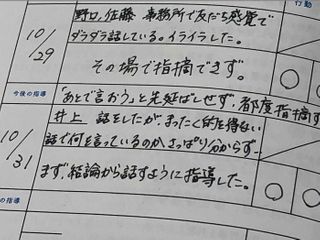 行動
10/29
野口、佐藤 事務所で友だち感覚で
ダラダラ話している。イライラした。
その場で指摘できず。
今後の指導
「あとで言おう」と先延ばしせず、都度指摘す
10/31
井上 話をしたが、まったく的を得ない
話で何を言っているのか、さっぱり分からず…
まず、結論から話すように指導した。
の指導